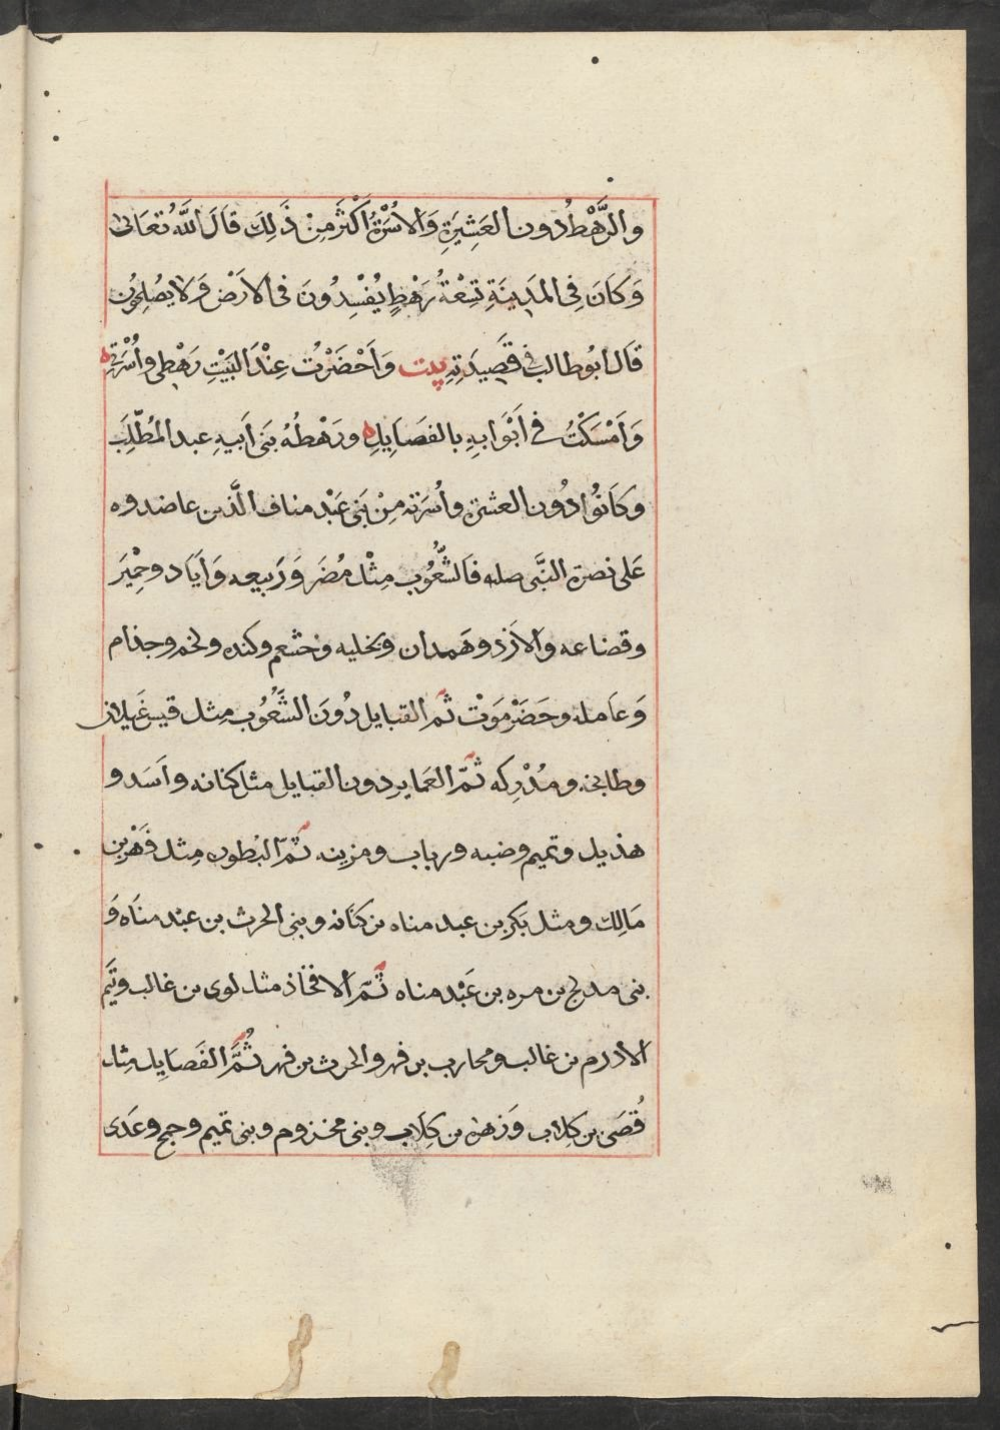 والرَّهْطُ دون العَشِيرَةِ وَالاُسْرَةُ اَكْثَرَ مِنْ ذَلِكَ قَالَ اللَّهُ تعَالىٰ
وَكَانَ فِى المَدِينَةِ تِسْعَةُ رَهْطٍ يُفْسِدُونَ فى الاَرْضِ وَلَا يصُلِحُون
قال ابُوطالب فى قَصِيدَتِهِ بيت وَاَحْضَرْتُ عِنْدَ البَيْتِ رَهْطِى واُسْرَتى
وَاَمْسَكْتُ فى اَبْوَابِهِ بالفصَايلِ ورَهْطُهُ بَنى اَبيهِ عبد المُطّلِبَ
وكَانُوا دُون العشيرة واُسْرَته مِنْ بَنى عَبْد مناف الَّذين عاضدوه
عَلى نصرة النَّبى صلعم فَالشُّعُوب مِثْل مُضَر وَرَبيعه وَاَيَاد وحِمْيَر
وقضاعه والاَزد وهَمدان وبخليه وخثعم وكنده ولخم وجذام
وَعَامله وحَضَرْمَوْت ثم القبايل دُونَ الشَّعُوُبِ مِثل قيس غَيلان
وطابخه ومُدْرِكه ثمّ العَمَاير دون القبايل مثل كنانه واَسَد و
هذيل وتميم وضبه ورباب ومزينه ثمّ البُطون مِثل فَهْر بن
مَالِك ومثل بَكر بن عبد مناه بن كنَانه وبنى الحرث بن عبْد منَاه وَ
بنى مدلج بن مره بن عَبْد مناه ثمّ الافخاذ مثل لوى بن غالب وتَيَم
الادرم بن غالب ومحارب بن فهر والحرث بن فهر ثُمَّ الفَصَايل مِثل
قُصَى بن كِلاب وَزهرة بن كِلَاب وبنى مخزوم وبنى تميم وجمح وعَدَى